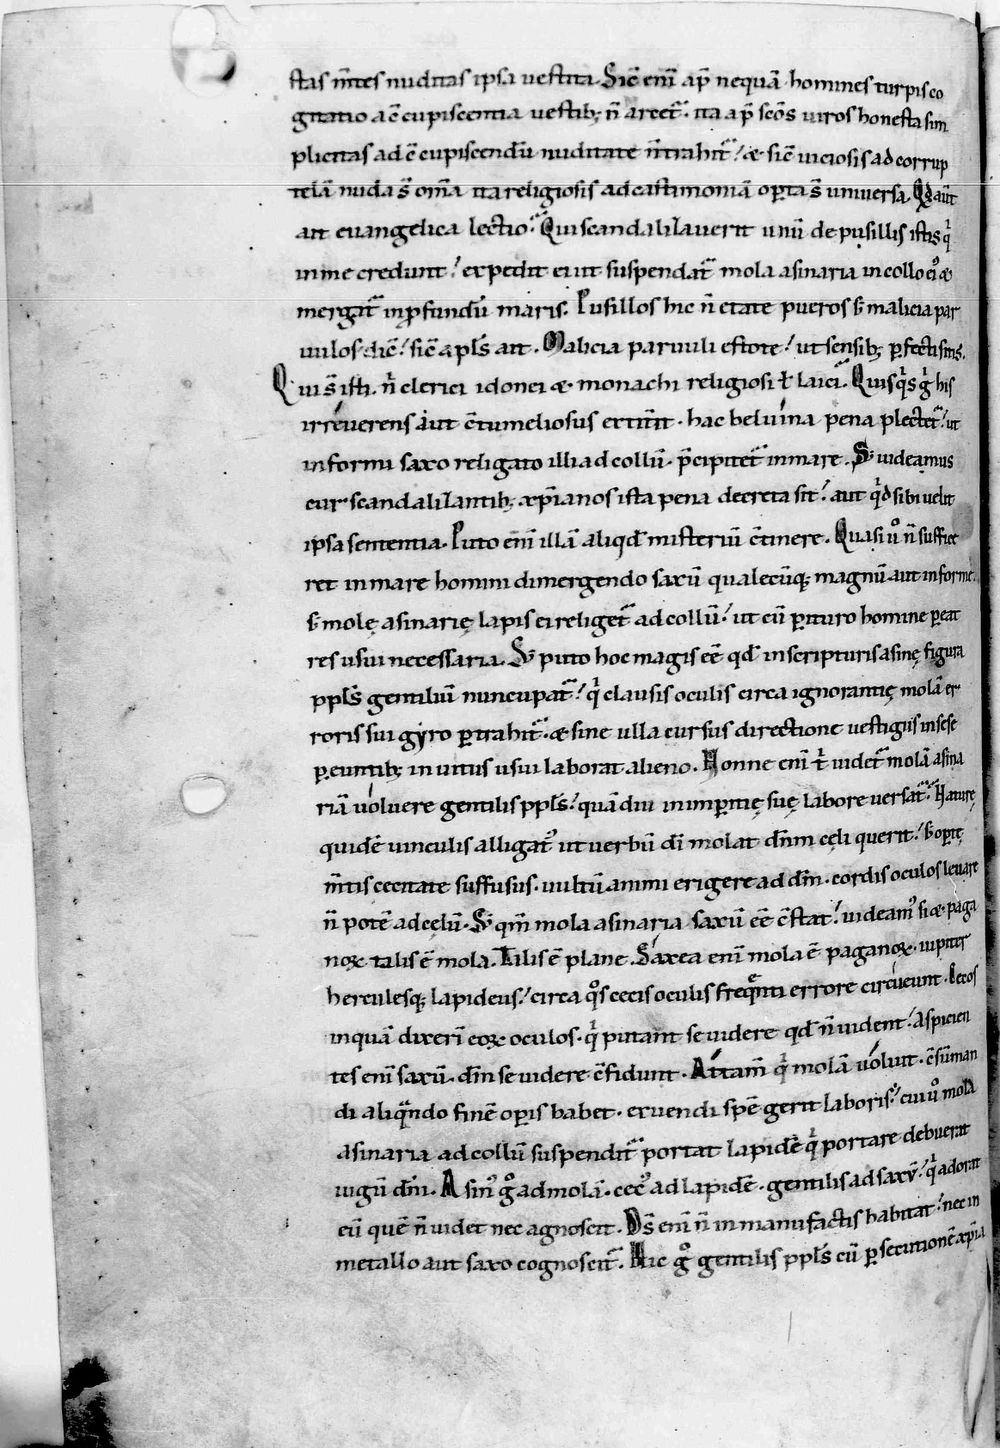 stas m̄tes nuditas ipsa uestita. Sic̄ enī ap̄ nequā homines turpis co
gitatio ac̄cupiscentia uestib; n̄ arcet᷑. ita ap̄ sc̄os uiros honesta sim
plicitas ad c̄cupiscendū nuditate n̄ trahit᷑. æ sic̄ uiciosis ad corrup
telā nuda s̄ om̄a ita religiosis ad castimoniā op̄ta s̄ uniuersa. Qd aūt
ait euangelica lectio. Qui scandalilauerit unū de pusillis istis q̄
in me credunt. expedit ei ut suspendat᷑ mola asinaria in collo ei᷒ æ
mergat᷑ in ꝓfundū maris. Pusillos hic n̄ etate pueros s; malicia par
uulos dic̄. sic̄ apl̄s ait. Malicia paruuli estote. ut sensib; ꝑfecti sitis.
Qui s̄ isti. n̄ clerici idonei æ monachi religiosi ł laici. Quisq̄s ḡ his
irreuerens aut c̄tumeliosus extit̄it. hac beluina pena plectet᷑. ut
informi saxo religato illi ad collū. p̄cipitet᷑ in mare. S; uideamus
cur scandalilantib; xp̄ianos ista pena decreta sit. aut qd̄ sibi uelit
ipsa sententia. Puto enī illā aliqd̄ misteriū c̄tinere. Quasi u͛o n̄ suffice
ret in mare homini dimergendo saxū qualecūq; magnū aut informe.
s; molę asinarię lapis ei religet᷑ ad collū. ut cū ꝑituro homine ꝑeat
res usui necessaria. S; puto hoc magis eē qd̄ in scripturis asinę figura
ppl̄s gentiliū nuncupat᷑. q̄ clausis oculis circa ignorantię molā er
roris sui gyro ꝑtrahit᷑. æ sine ulla cursus directione uestigiis in sese
ꝑeuntib; inuitus usui laborat alieno. Nonne enī t᷑ uidet᷑ molā asina
riā uoluere gentilis ppl̄s. quādiu in imꝑitię suę labore uersat᷑. Naturę
quidē uinculis alligat᷒ ut uerbū dī molat dn̄m cęli querit. s; op̄tę
m̄tis cecitate suffusus. uultū animi erigere ad dn̄m. cordis oculos leuare
n̄ potē ad celū. S; qm̄ mola asinaria saxū eē c̄stat. uideam᷒ si æ paga
noꝝ talis ē mola. Talis ē plane. Saxea enī mola ē paganoꝝ. iupiter
herculesq; lapideus. circa q̊s cecis oculis freq̄nti errore circueunt. Cecos
inquā dixerī eoꝝ oculos. q̄ putant se uidere qd̄ n̄ uident. aspicien
tes enī saxū. dn̄m se uidere c̄fidunt. Attam̄ q̄ molā uoluit. c̄sūman
di aliq̄ndo finē oꝑis habet. exuendi spē gerit laboris. cui u͛o mola
asinaria ad collū suspendit᷑ portat lapidē q̄ portare debuerat
iugū dn̄i. Asin᷒ g̊ ad molā. cec᷒ ad lapidē. gentilis ad saxū. q̄ adorat
eū quē n̄ uidet nec agnoscit. Ds̄ enī n̄ in manufactis habitat. nec in
metallo aut saxo cognoscit᷑. Hic g̊ gentilis ppl̄s cū ꝑsecutionē xp̄ia